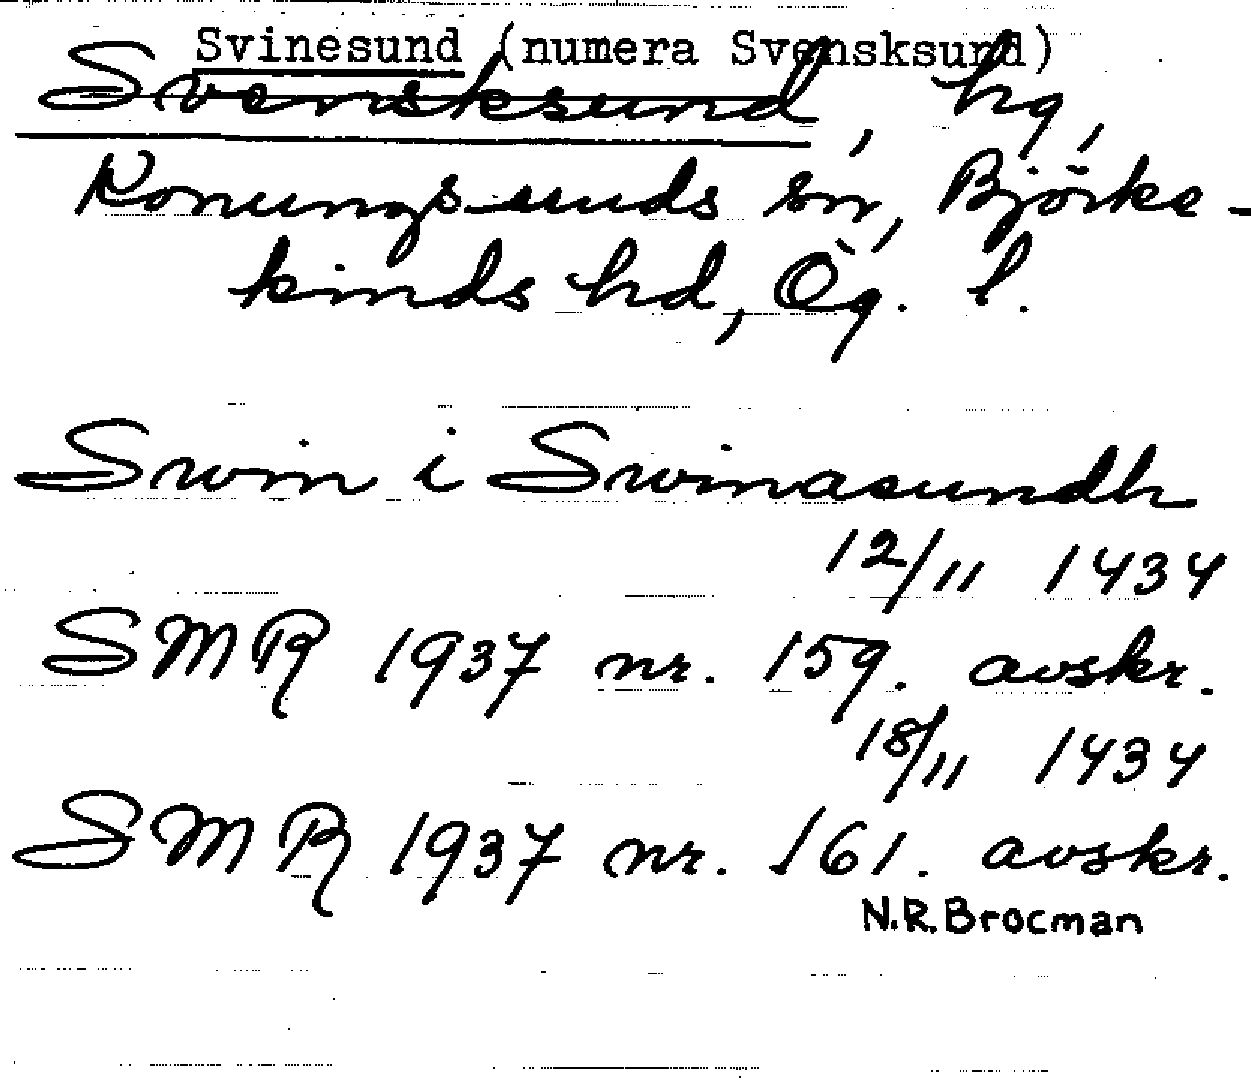 Svinesund (numera Svensksund)
Svensksund, hg,
Konungssunds sn, Björke-
kinds hd, Ög. l.
Swin i Swinasundh
12/11 1434
SMR 1937 nr. 159. avskr.
18/11 1434
SMR 1937 nr. 161. avskr.
N.R. Brocman